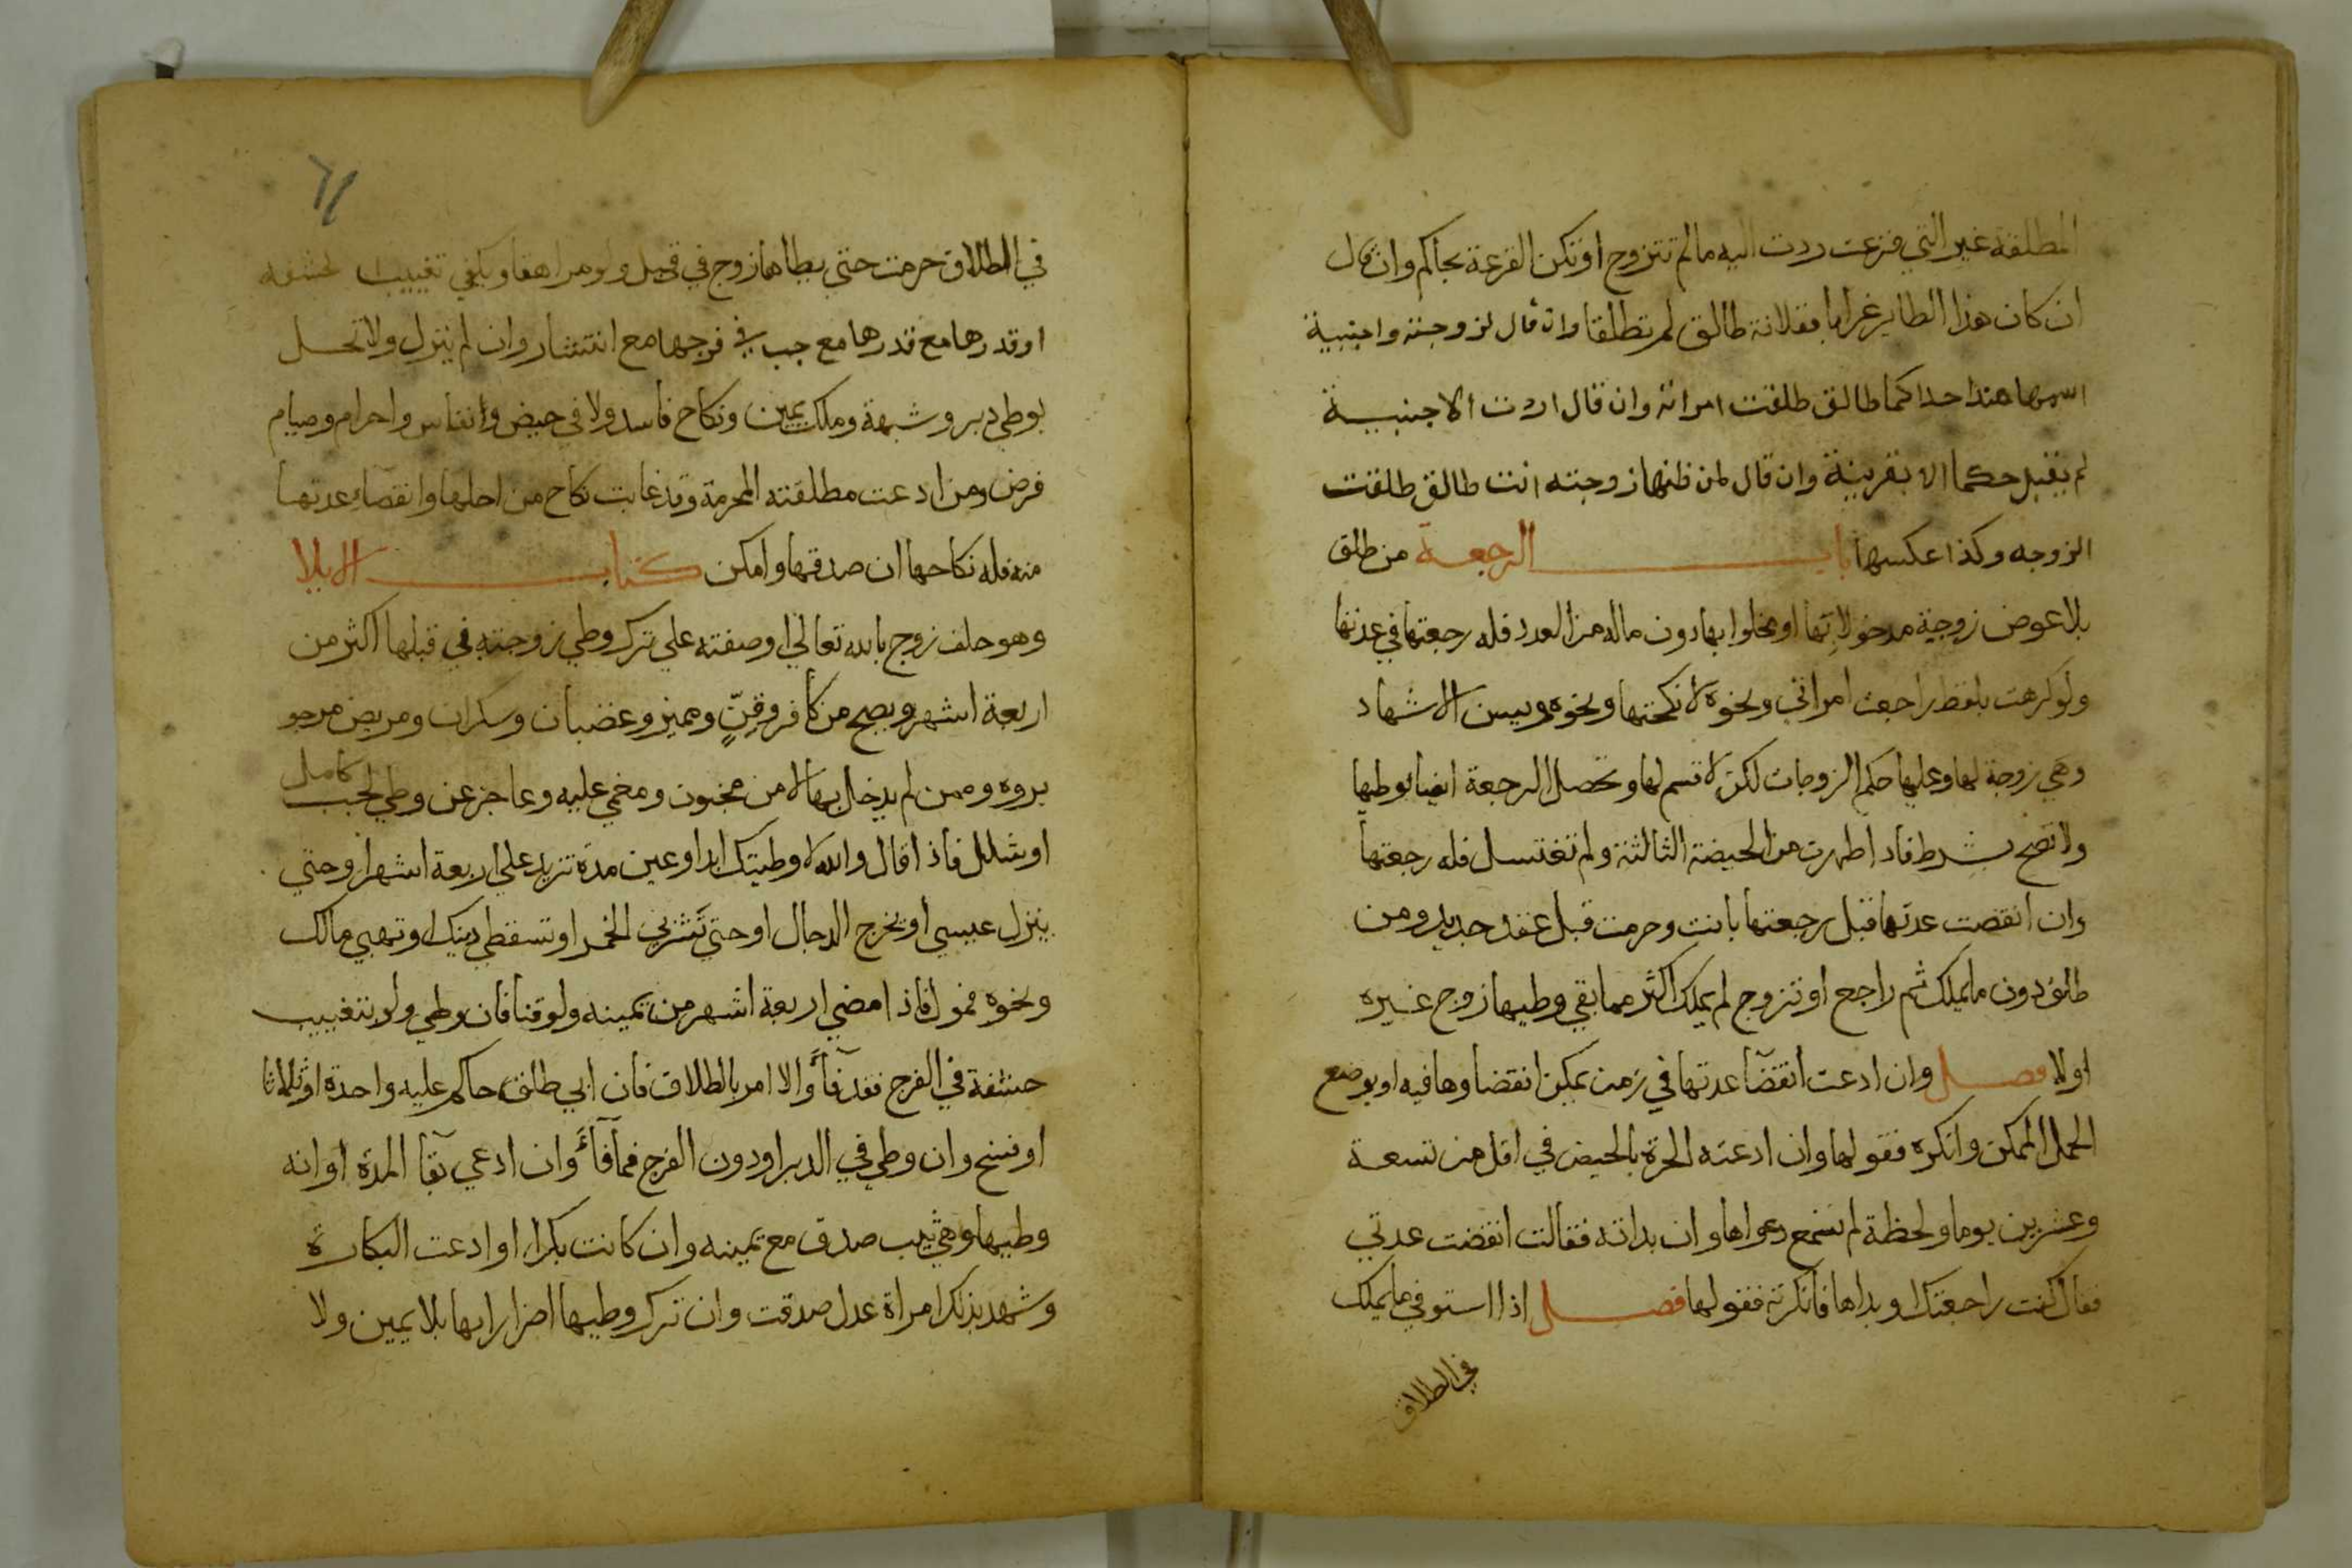 المطلقة غير التي قرعت ردت اليه ما لم تتزوج او تكن القرعة بحاكم وان قال
ان كان هذا الطاير غرابا ففلانة طالق لم تطلقا وان قال لزوجته واجنبية
اسمها هند احداكما طالق طلقت امراته وان قال اردت الاجنبية
لم يقبل حكما الا بقرينة وان قال لمن ظنها زوجته انت طالق طلقت
الزوجه وكذا عكسها باب الرجعة من طلق
بلا عوض زوجة مدخولا بها او مخلوا بها دون ماله من العدد فله رجعتها في عدتها
ولو كرهت بلفظ راجعت امراتي ونحوه لا نكحتها ونحوه ويسن الاشهاد
وهي زوجة لها وعليها حكم الزوجات لكن لا قسم لها وتحصل الرجعة ايضا بوطيها
ولا تصح بشرط فاذا طهرت من الحيضة الثالثة ولم تغتسل فله رجعتها
وان انقضت عدتها قبل رجعتها بانت وحرمت قبل عقد جديد ومن
طلق دون ما يملك ثم راجع او تزوج لم يملك اكثر مما بقي وطيها زوج غيره
اولا فصل وان ادعت انقضآ عدتها في زمن يمكن انقضاوها فيه او بوضع
الحمل الممكن وانكره فقولها وان ادعته الحرة بالحيض في اقل من تسعة
وعشرين يوما ولحظة لم تسمع دعواها وان بداته فقالت انقضت عدتي
فقال كنت راجعتك او بداها فانكرته فقولها فصل اذا استوفي ما يملك
في الطلاق
٦١
في الطلاق حرمت حتي يطاها زوج في قبل ولو مراهقا ويكفي تغييب الحشفه
او قدرها مع جب في فرجها مع انتشار وان لم ينزل ولا تحل
بوطي دبر وشبهة وملك يمين ونكاح فاسد ولا في حيض ونفاس واحرام وصيام
فرض ومن ادعت مطلقته المحرمة وقد غابت نكاح من احلها وانقضآء عدتها
منه فله نكاحها ان صدقها وامكن كتاب الايلا
وهو حلف زوج بالله تعالي او صفته علي ترك وطي زوجته في قبلها اكثر من
اربعة اشهر ويصح من كافر وقنٍّ ومميز وغضبان وسكران ومريض مرجو
بروه وممن لم يدخل بها لا من مجنون ومغمي عليه وعاجز عن وطي لجب كامل
او شلل فاذا قال والله لا وطيتك ابدا او عين مدة تزيد علي اربعة اشهر او حتي
ينزل عيسي او يخرج الدجال او حتي تشربي الخمر او تسقطي دينك او تهبي مالك
ونحوه فمول فاذا مضي اربعة اشهر من يمينه ولو قنا فان وطي ولو بتغييب
حشفة في الفرج فقد فآء والا امر بالطلاق فان ابي طلق حاكم عليه واحدة او ثلاثا
او فسخ وان وطي في الدبر او دون الفرج فما فآء وان ادعي بقآ المدة او انه
وطيها وهي ثيب صدق مع يمينه وان كانت بكرا او ادعت البكارة
وشهد بذلك امراة عدل صدقت وان ترك وطيها اضرارا بها بلا يمين ولا